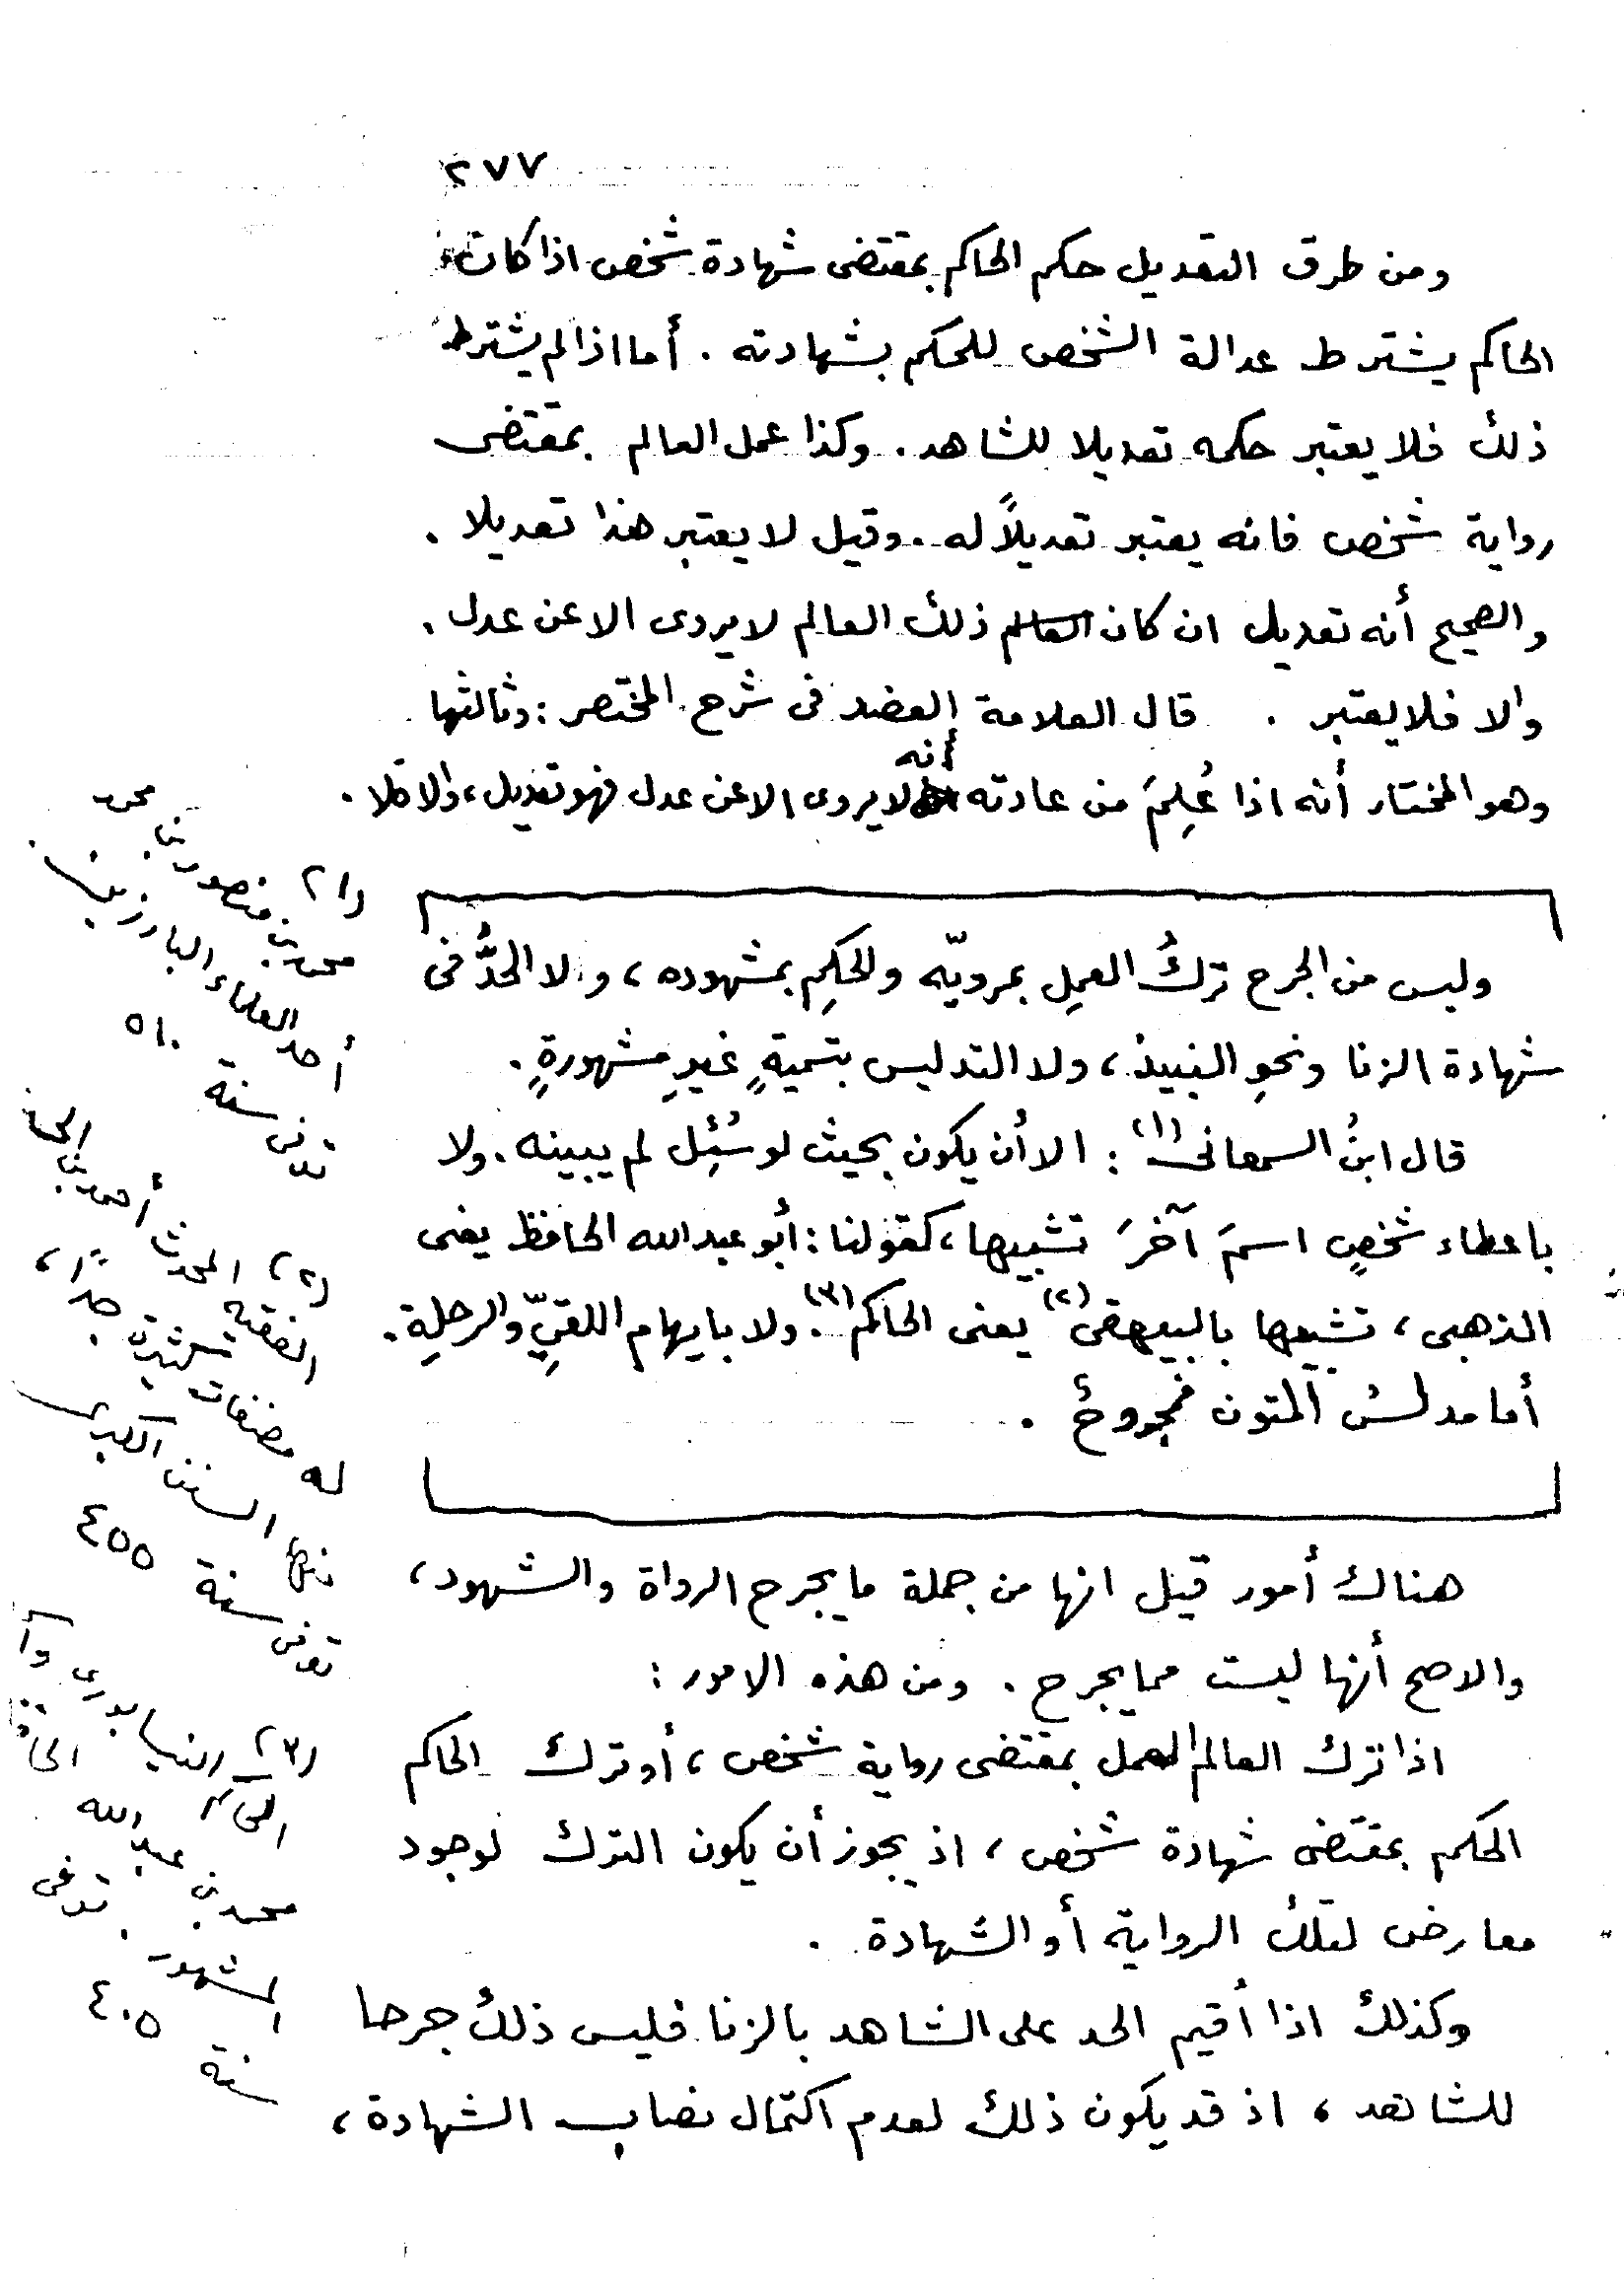 ٢٧٧
ومن طرق التعديل حكم الحاكم بمقتضى شهادة شخص اذا كان
الحاكم يشترط عدالة الشخص للحكم بشهادته . أما اذا لم يشترط
ذلك فلا يعتبر حكمه تعديلا للشاهد . وكذا عمل العالم بمقتضى
رواية شخص فانه يعتبر تعديلاً له . وقيل لا يعتبر هذا تعديلا .
والصحيح أنه تعديل ان كان ذلك العالم لا يروى الا عن عدل .
والا فلا يعتبر . قال العلامة العضد فى شرح المختصر : وثالثها
وهو المختار أنه اذا عُلِمَ من عادته أنه لا يروى الا عن عدل فهو تعديل ، والا فلا .
وليس من الجرح تركُ العمل بمرويّه والحكمِ بمشهوده ، ولا الحدُّ فى
شهادة الزنا ونحوِ النبيذ ، ولا التدليس بتسميةٍ غيرِ مشهورةٍ .
قال ابنُ السمعانى (١) : الا أن يكون بحيث لو سُئِل لم يبينه . ولا
باعطاء شخصٍ اسمَ آخرَ تشبيها ، كقولنا : أبو عبد الله الحافظ يعنى
الذهبى ، تشبيها بالبيهقى (٢) يعنى الحاكم (٣) . ولا بايهام اللقيّ والرحلةِ .
أما مدلسُ المتون فمجروحٌ .
هناك أمور قيل انها من جملة ما يجرح الرواة والشهود ،
والاصح أنها ليست مما يجرح . ومن هذه الامور :
اذا ترك العالم العمل بمقتضى رواية شخص ، أو ترك الحاكم
الحكم بمقتضى شهادة شخص ، اذ يجوز أن يكون الترك لوجود
معارض لتلك الرواية أو الشهادة .
وكذلك اذا أقيم الحد على الشاهد بالزنا فليس ذلك جرحا
للشاهد ، اذ قد يكون ذلك لعدم اكتمال نصاب الشهادة ،
(١) محمد بن منصور بن محمد
أحد العلماء البارزين .
توفى سنة ٥١٠
(٢) المحدث أحمد بن
الفقيه
له مصنفات كثيرة جدًا ،
منها السنن الكبرى
توفى سنة ٤٥٥
(٣) النيسابورى
الحاكم
محمد بن عبد الله
المشهور . توفى
سنة ٤٠٥